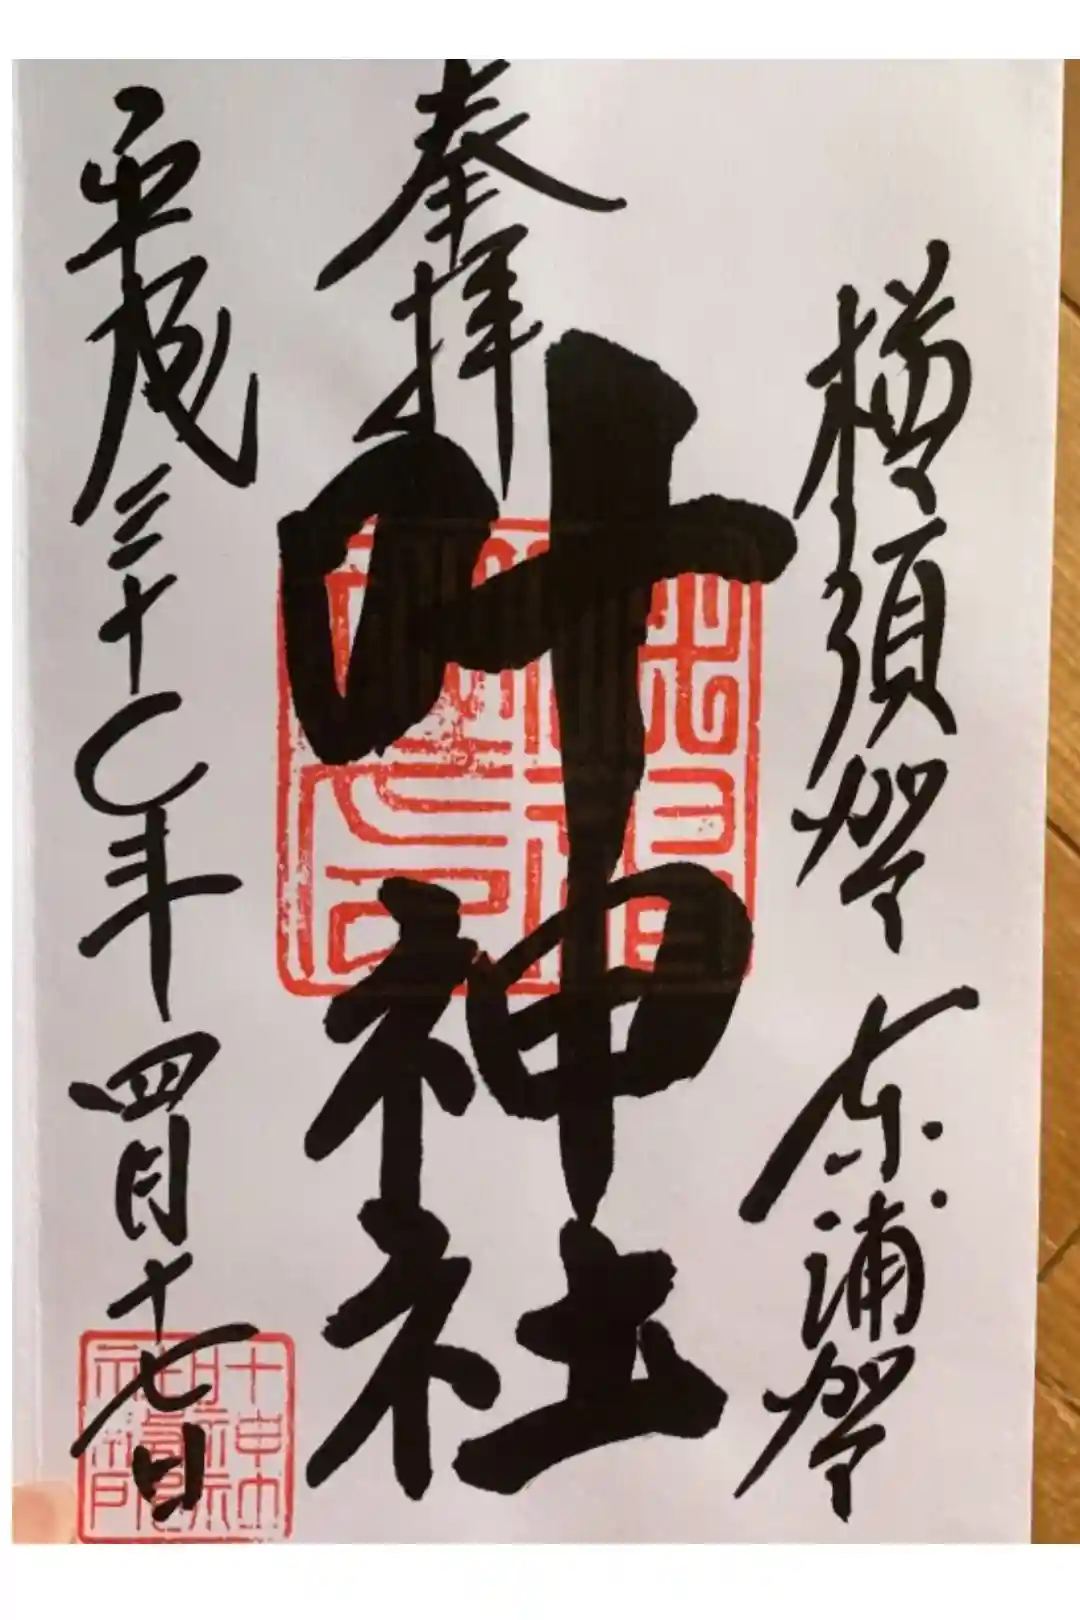 横須賀 東浦賀
奉拝
叶神社
平成三十〇年四月十七日
叶神社
社務所